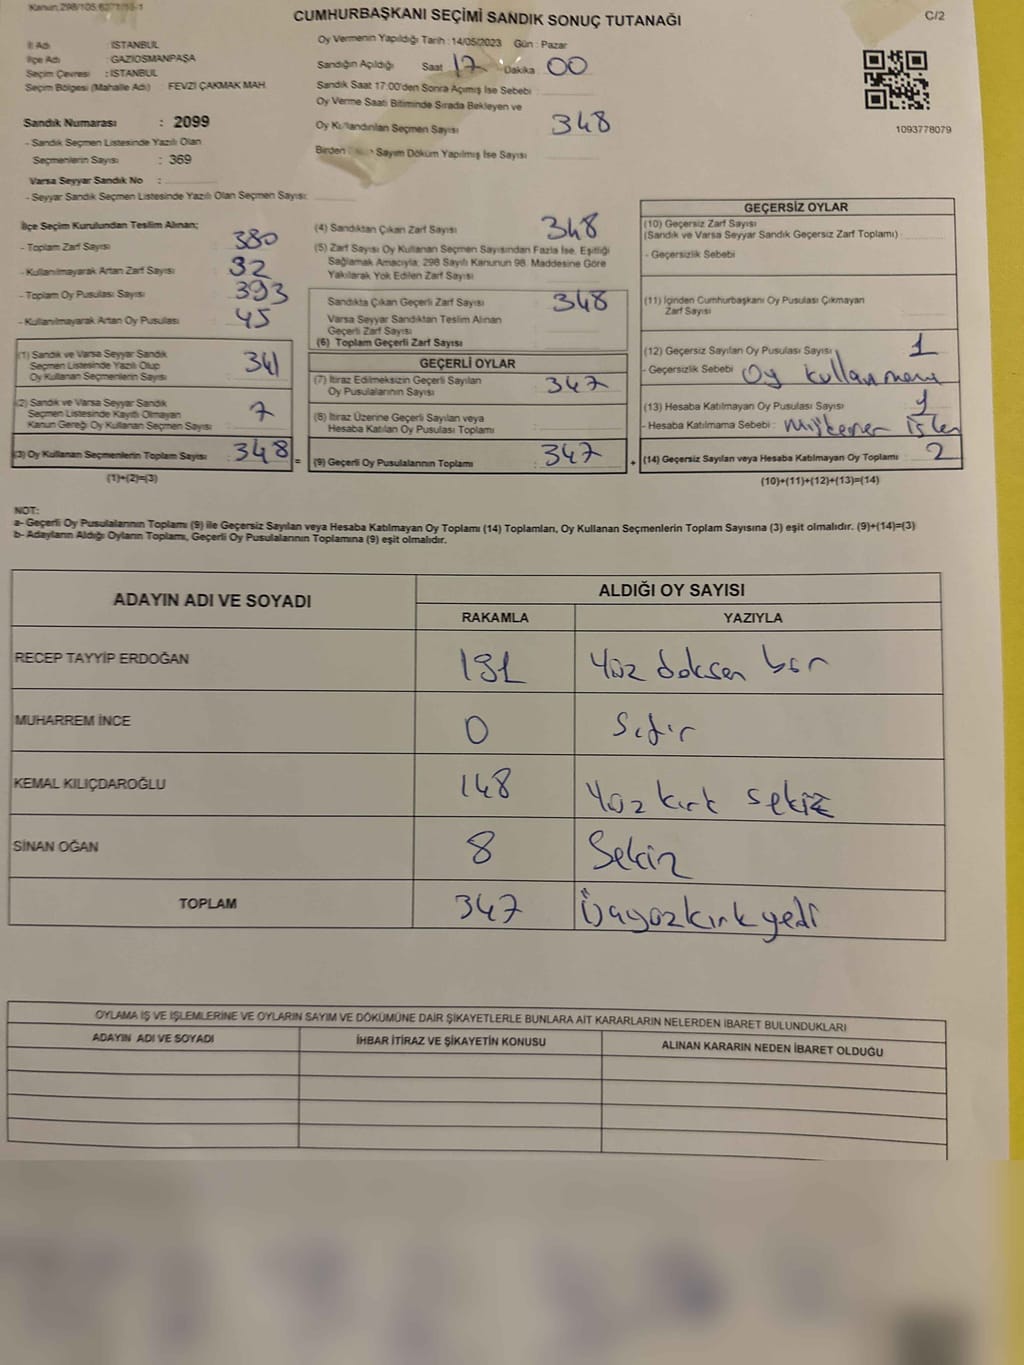 Kanun:298/105,
CUMHURBAŞKANI SEÇİMİ SANDIK SONUÇ TUTANAĞI
C/2
İl Adı : İSTANBUL
İlçe Adı : GAZİOSMANPAŞA
Seçim Çevresi : İSTANBUL
Seçim Bölgesi (Mahalle Adı) : FEVZİ ÇAKMAK MAH.
Sandık Numarası : 2099
- Sandık Seçmen Listesinde Yazılı Olan
Seçmenlerin Sayısı : 369
Varsa Seyyar Sandık No :
- Seyyar Sandık Seçmen Listesinde Yazılı Olan Seçmen Sayısı:
Oy Vermenin Yapıldığı Tarih : 14/05/2023 Gün : Pazar
Sandığın Açıldığı Saat 17 Dakika 00
Sandık Saat 17:00'den Sonra Açımış İse Sebebi :
Oy Verme Saati Bitiminde Sırada Bekleyen ve
Oy Kullandırılan Seçmen Sayısı 348
Birden Sayım Döküm Yapılmış İse Sayısı
1093778079
İlçe Seçim Kurulundan Teslim Alınan;
- Toplam Zarf Sayısı 380
- Kullanılmayarak Artan Zarf Sayısı 32
- Toplam Oy Pusulası Sayısı 393
- Kullanılmayarak Artan Oy Pusulası 45
(1) Sandık ve Varsa Seyyar Sandık
Seçmen Listesinde Yazılı Olup
Oy Kullanan Seçmenlerin Sayısı 341
(2) Sandık ve Varsa Seyyar Sandık
Seçmen Listesinde Kayıtlı Olmayan
Kanun Gereği Oy Kullanan Seçmen Sayısı : 7
(3) Oy Kullanan Seçmenlerin Toplam Sayısı : 348 =
(1)+(2)=(3)
(4) Sandıktan Çıkan Zarf Sayısı 348
(5) Zarf Sayısı Oy Kullanan Seçmen Sayısından Fazla İse, Eşitliği
Sağlamak Amacıyla; 298 Sayılı Kanunun 98. Maddesine Göre
Yakılarak Yok Edilen Zarf Sayısı
Sandıkta Çıkan Geçerli Zarf Sayısı 348
Varsa Seyyar Sandıktan Teslim Alınan
Geçerli Zarf Sayısı
(6) Toplam Geçerli Zarf Sayısı
GEÇERLİ OYLAR
(7) İtiraz Edilmeksizin Geçerli Sayılan
Oy Pusulalarının Sayısı 347
(8) İtiraz Üzerine Geçerli Sayılan veya
Hesaba Katılan Oy Pusulası Toplamı
(9) Geçerli Oy Pusulalarının Toplamı 347 +
GEÇERSİZ OYLAR
(10) Geçersiz Zarf Sayısı
(Sandık ve Varsa Seyyar Sandık Geçersiz Zarf Toplamı)
- Geçersizlik Sebebi
(11) İçinden Cumhurbaşkanı Oy Pusulası Çıkmayan
Zarf Sayısı
(12) Geçersiz Sayılan Oy Pusulası Sayısı 1
- Geçersizlik Sebebi Oy kullanmama
(13) Hesaba Katılmayan Oy Pusulası Sayısı 1
- Hesaba Katılmama Sebebi :
(14) Geçersiz Sayılan veya Hesaba Katılmayan Oy Toplamı : 2
(10)+(11)+(12)+(13)=(14)
NOT:
a- Geçerli Oy Pusulalarının Toplamı (9) ile Geçersiz Sayılan veya Hesaba Katılmayan Oy Toplamı (14) Toplamları, Oy Kullanan Seçmenlerin Toplam Sayısına (3) eşit olmalıdır. (9)+(14)=(3)
b- Adayların Aldığı Oyların Toplamı, Geçerli Oy Pusulalarının Toplamına (9) eşit olmalıdır.
ADAYIN ADI VE SOYADI
ALDIĞI OY SAYISI
RAKAMLA YAZIYLA
RECEP TAYYİP ERDOĞAN 191 Yüz doksan bir
MUHARREM İNCE 0 Sıfır
KEMAL KILIÇDAROĞLU 148 Yüz kırk sekiz
SİNAN OĞAN 8 Sekiz
TOPLAM 347 Üçyüzkırkyedi
OYLAMA İŞ VE İŞLEMLERİNE VE OYLARIN SAYIM VE DÖKÜMÜNE DAİR ŞİKAYETLERLE BUNLARA AİT KARARLARIN NELERDEN İBARET BULUNDUKLARI
ADAYIN ADI VE SOYADI İHBAR İTİRAZ VE ŞİKAYETİN KONUSU ALINAN KARARIN NEDEN İBARET OLDUĞU